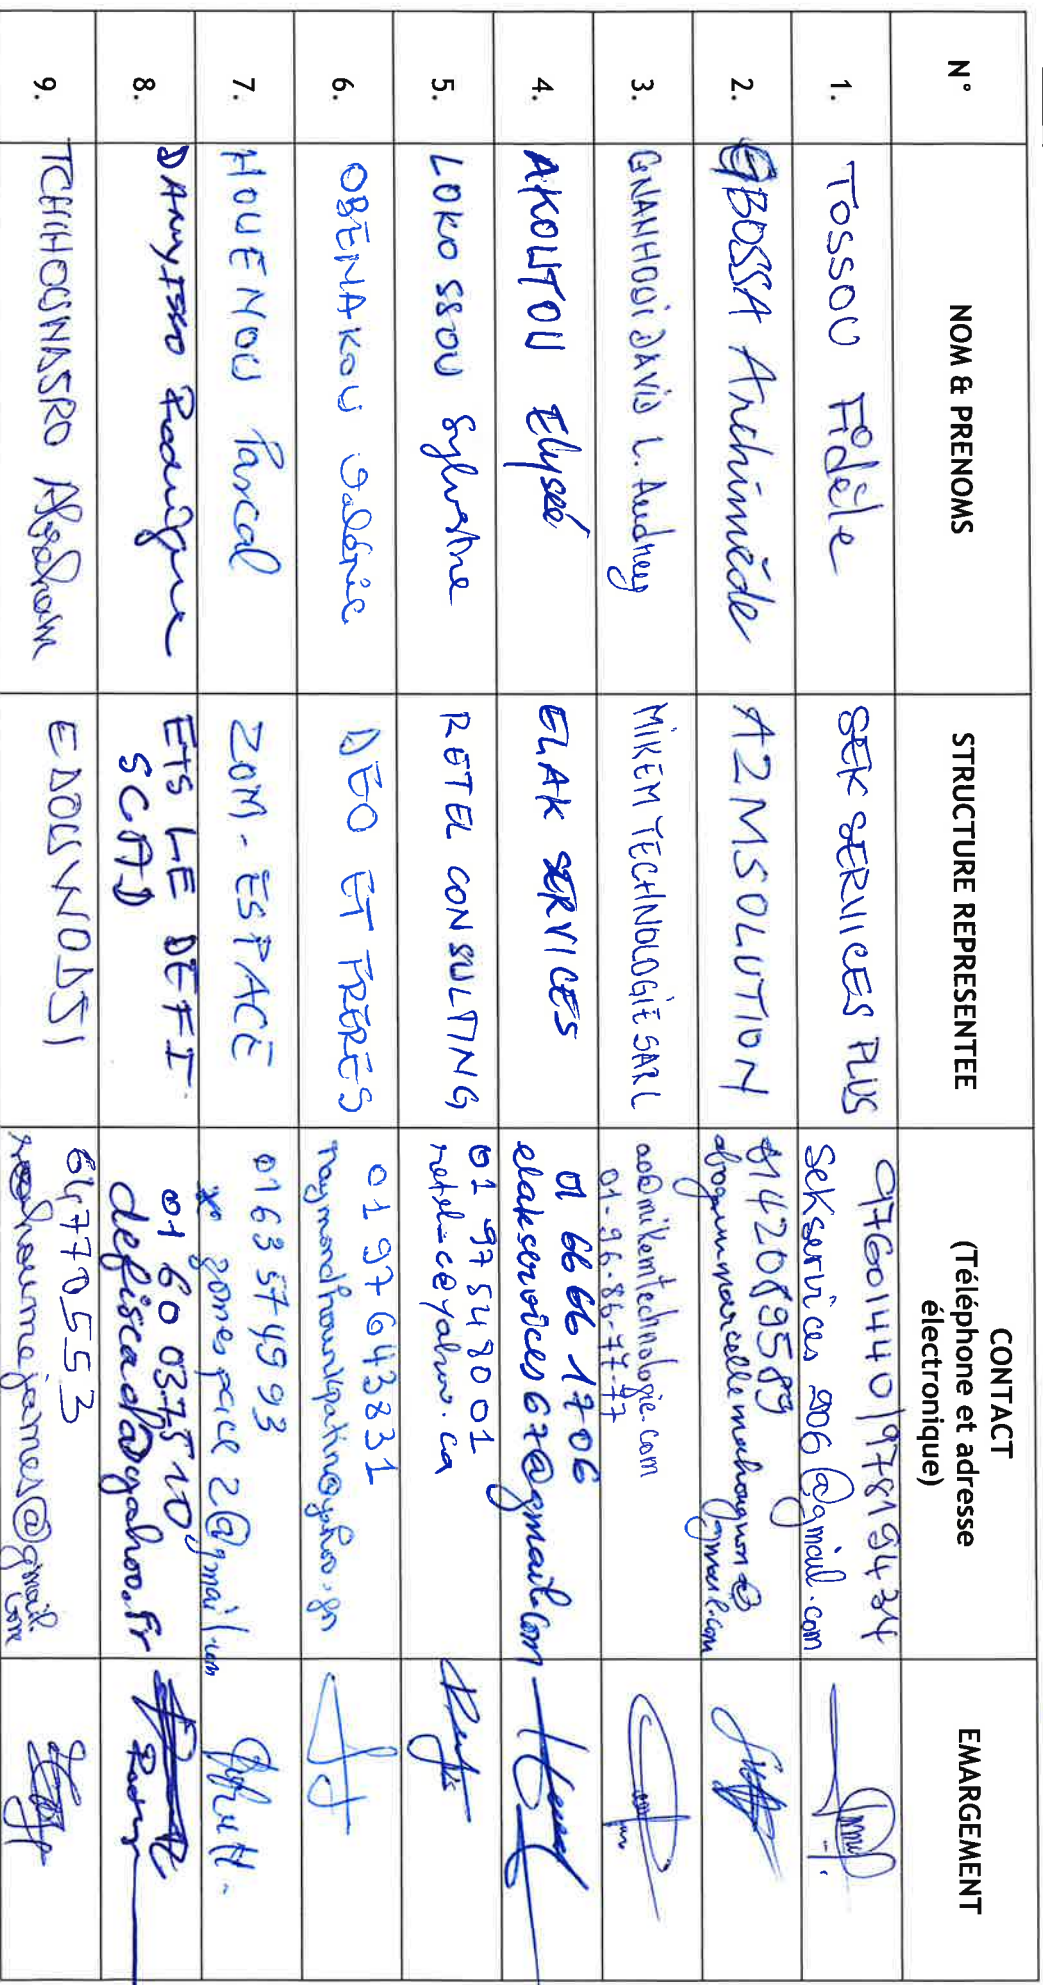 N° NOM & PRENOMS STRUCTURE REPRESENTEE CONTACT
(Téléphone et adresse
électronique) EMARGEMENT
1. TOSSOU Fidèle SEK SERVICES PLUS 97601440/97819434
sekservices 2006@gmail.com
2. GBOSSA Archimède A2MSOLUTION 0142089589
gmail.com
3. GNANHOUI DAVID L. Audrey MIKEM TECHNOLOGIE SARL ao@mikemtechnologie.com
01-96-86-77-77
4. AKOWTOU Elysée ELAK SERVICES 01 66 66 17 06
elakservices67@gmail.com
5. LOKOSSOU Sylvestre RETEL CONSULTING 01 97548001
retel-ce@yahoo.ca
6. OBENAKOU DEO ET FRERES 01 97643831
7. HOUENOU Pascal ZOM-ESPACE 0163574993
zomespace2@gmail.com
8. Rodrigue ETS LE DEFI
SCAD 01 60 037510
defiscad@yahoo.fr
9. Abraham EDOUWODJI 64770553
@gmail.com